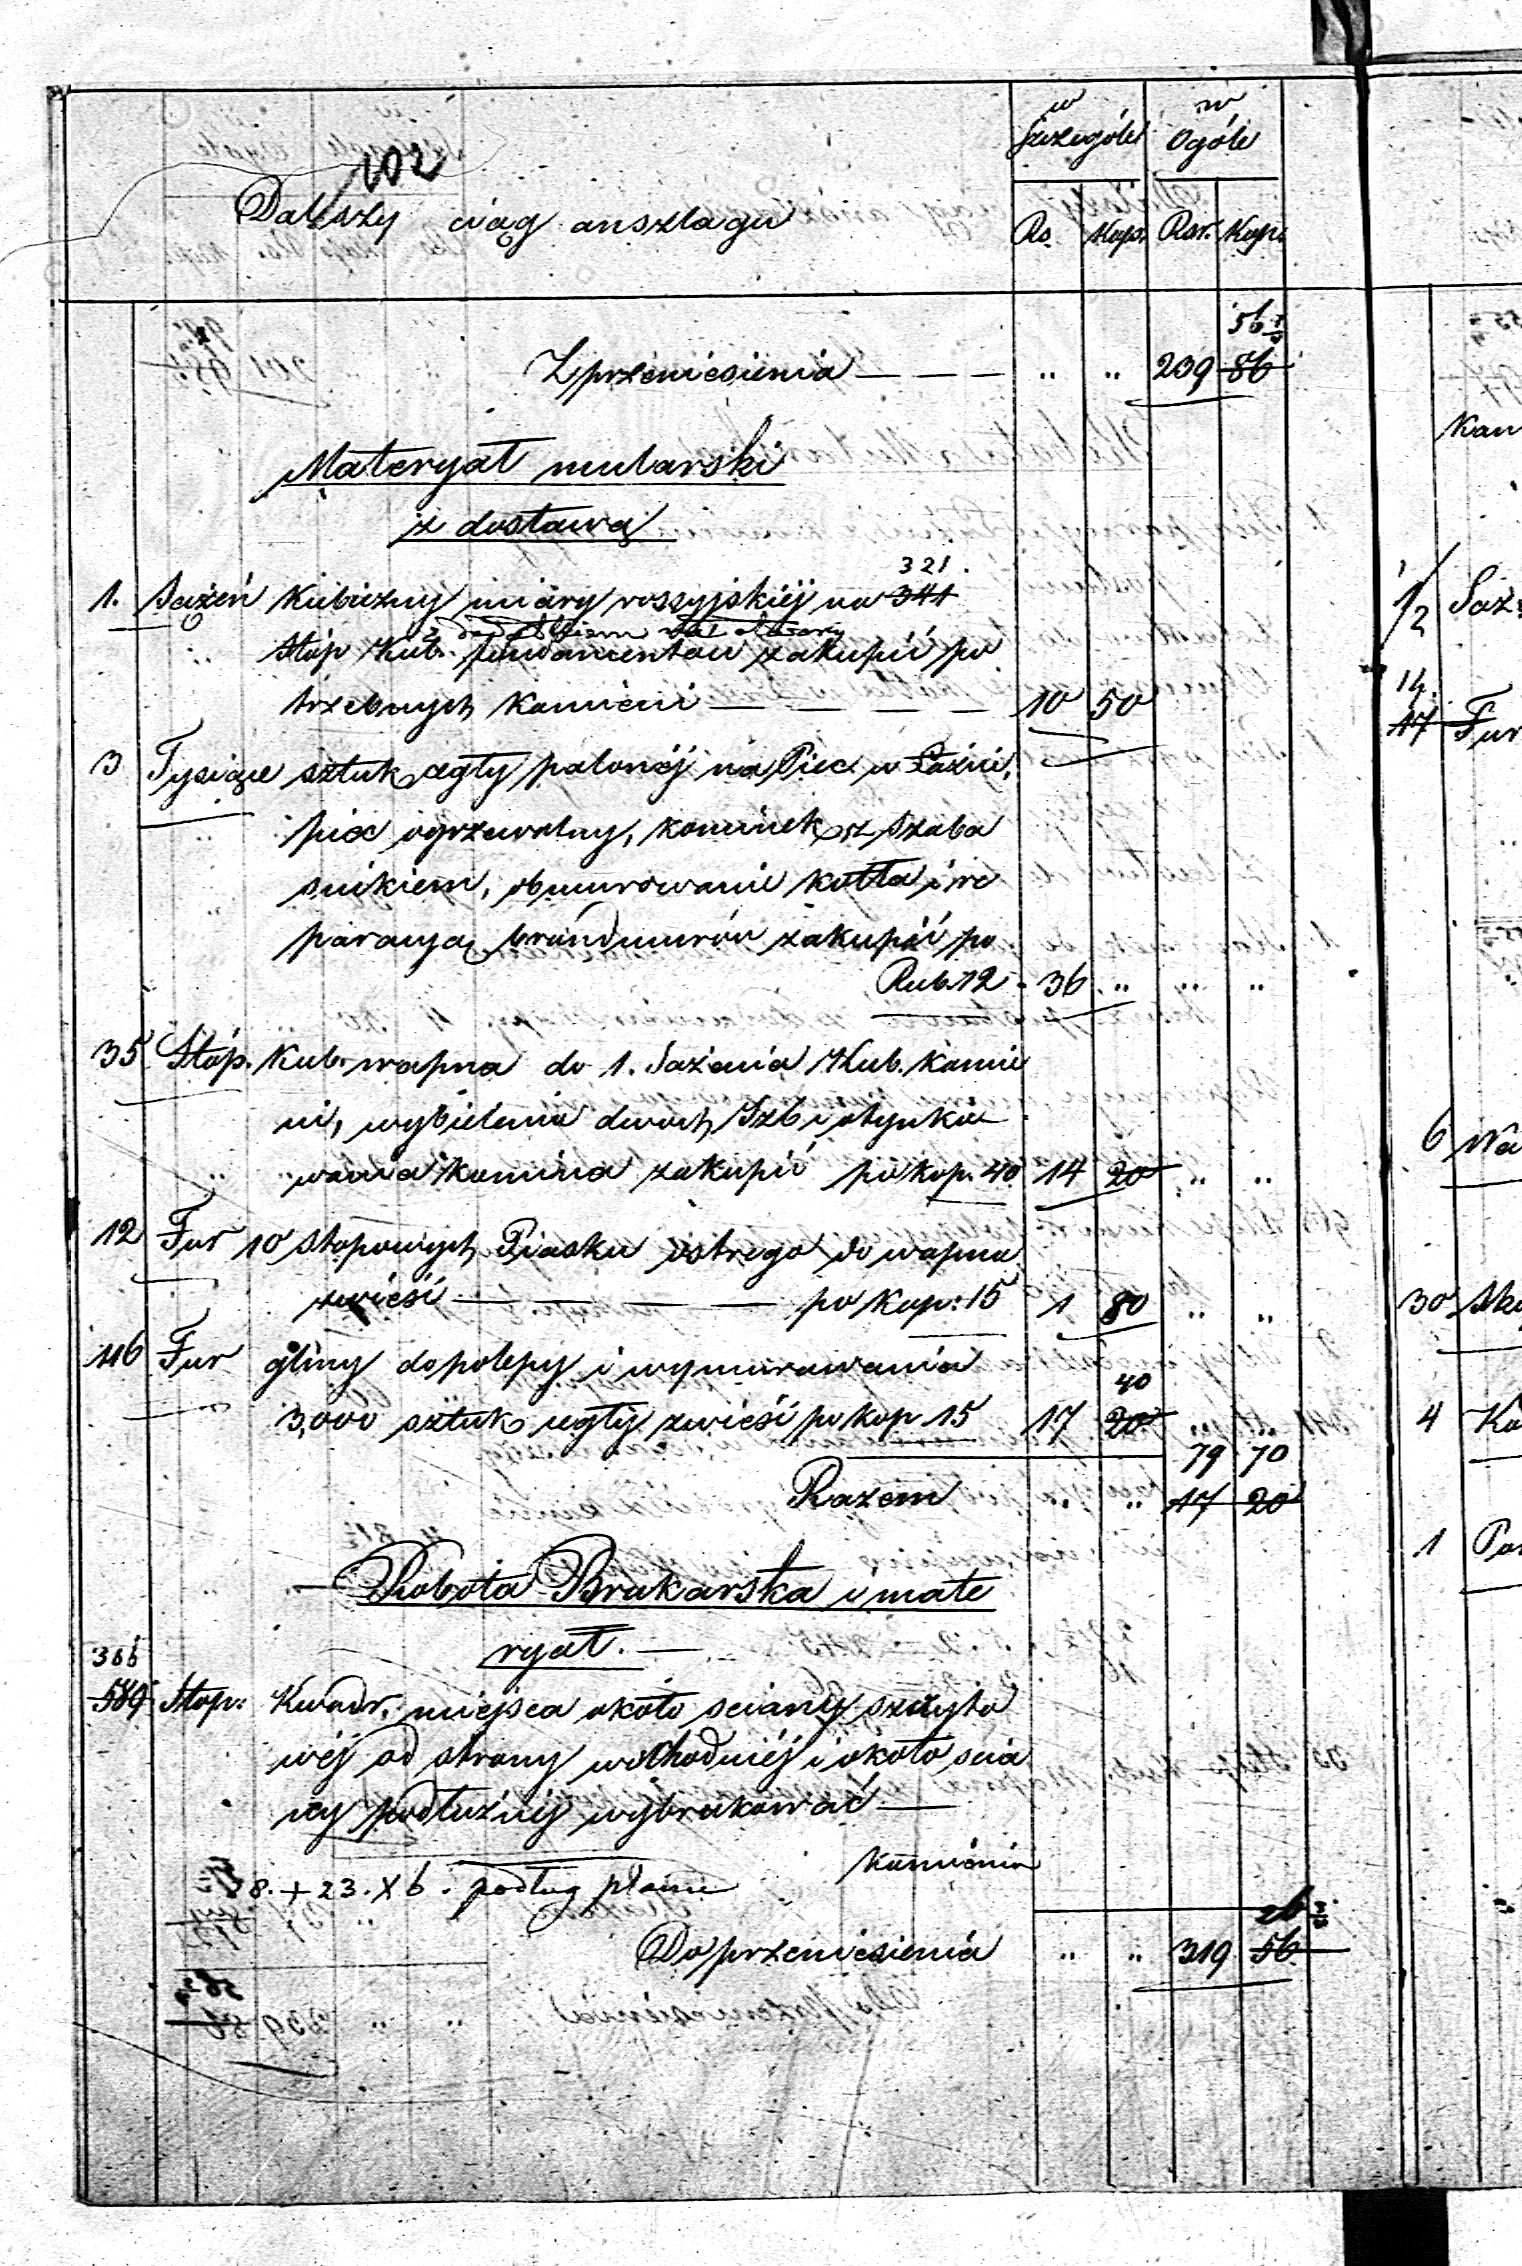 102
w Szczególe w Ogóle
Dalszy ciąg anszlagu Rs. Kop. Rsr. Kop.
56 1/2
Z przeniesienia — — — " " 239 86
Materyał mularski
z dostawą
321.
1. Sążeń Kubiczny miary rossyjskiéj na 341
Stóp Kub. fundamentów zakupić po
trzebnych kamieni — — — — 10 50
3 Tysiące sztuk cegły palonéj na Piec w Łaźni,
piec ogrzewalny, kominek z szaba
śnikiem, obmurowanie kotła i re
paracyą brandmurów zakupić po
Rub. 12 - 36 " " "
35 Stóp. Kub. wapna do 1. Sążenia Kub. kamie
ni, wybielenia dwóch Izb i otynko
wania komina zakupić po kop. 40 14 20 " "
12 Fur 10 stopowych Piasku ostrego do wapna
zwieść — — — — po kop: 15 1 80 " "
116 Fur gliny do polepy i wymurowania
40
3,000 sztuk cegły zwieść po kop 15 17 20 " "
79 70
Razem " " 17 20
Robota Brukarska i mate
ryał. —
366
589 Stóp: Kwadr. miejsca około sciany szczyto
wéj od strony wschodniéj i około scia
ny podłużnéj wybrukować —
kamienia
8. + 23. X 6. podług planu
26 1/2
Do przeniesienia " " 319 56
Kam
1/2 Saż
14.
17 Fur
6 Wa
30
4
1